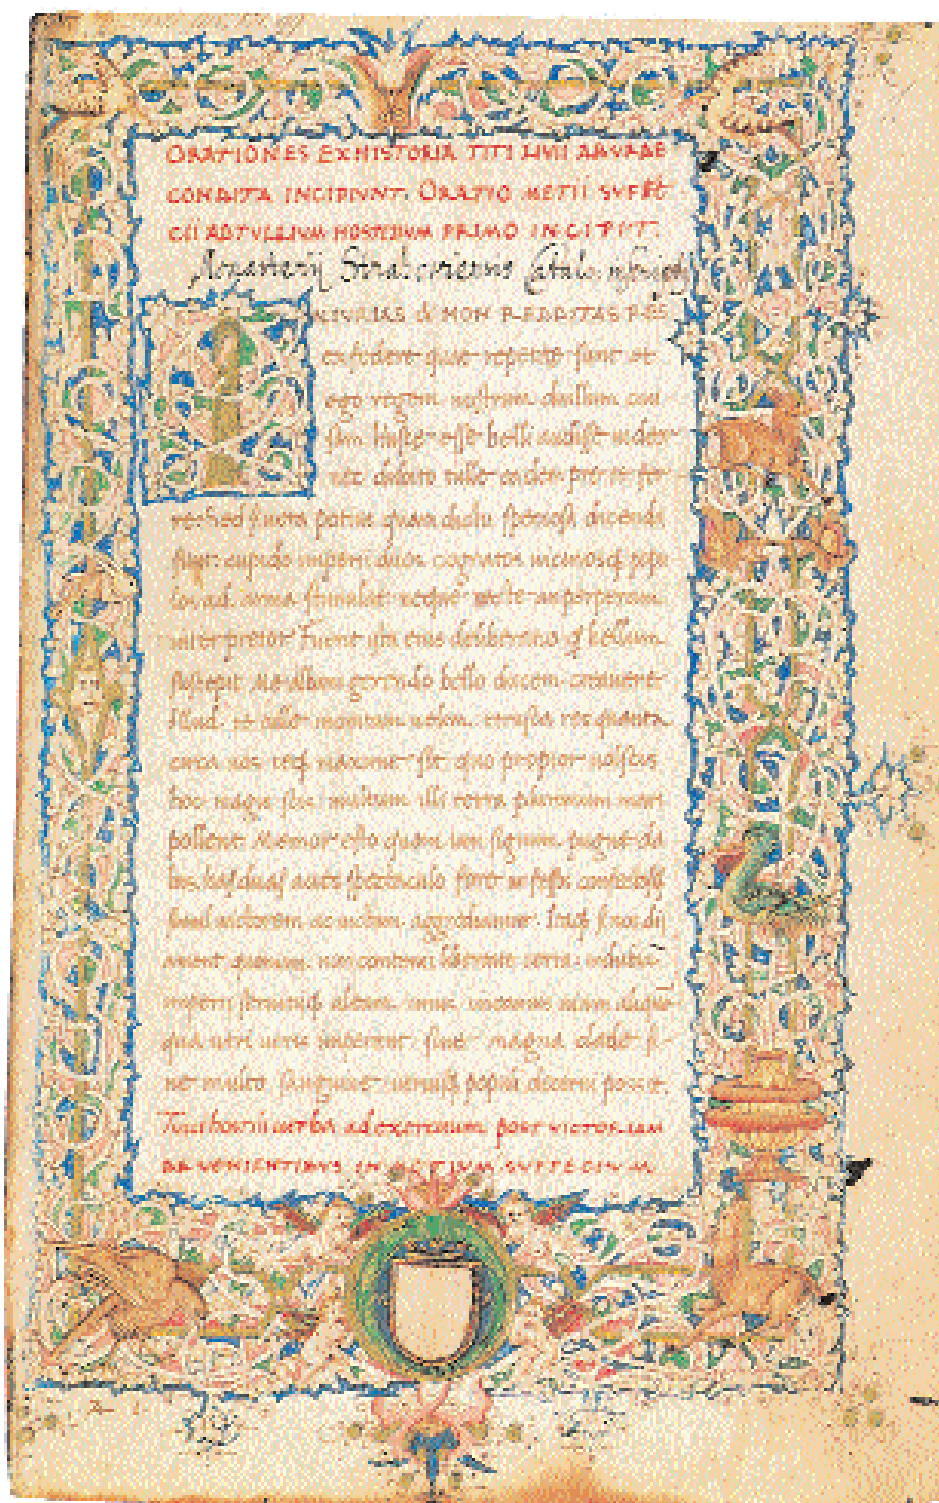 ORATIONES EX HISTORIA TITI LIVII AB VRBE
CONDITA INCIPIVNT. ORATIO METII SVFFET
CII AD TVLLIVM HOSTILIVM PRIMO INCIPIT.
Monasterij Strahoviensis Catalo: inscriptus
INIVRIAS & NON REDDITAS RES
ex federe que repetite sunt et
ego regem nostrum cluilium cau
sam huiusce esse belli audisse videor
nec dubito tulle eadem pre te fer
re sed si vera potius quam dictu speciosa dicenda
sunt cupido imperii duos cognatos vicinosq popu
los ad arma stimulat neque recte an perperam
interpretor Fuerit ista eius deliberatio q bellum
suscepit Me albani gerendo bello ducem creavere
Illud te tulle monitum velim etrusca res quanta
circa nos teq maxime sit quo propior
hoc magis scis multum illi terra plurimum mari
pollent. Memor esto quom iam signum pugne da
bis, has duas acies spectaculo fore ut fessos confectosq
simul victorem ac victum aggrediantur. Itaq si nos dij
ament quoniam non contenti libertate certa in dubia
imperii servitiiq aleam imus ineamus viam aliqua
qua utri utris imperent sine magna clade si
ne multo sanguine utriusq populi decerni possit.
Tulli hostilii